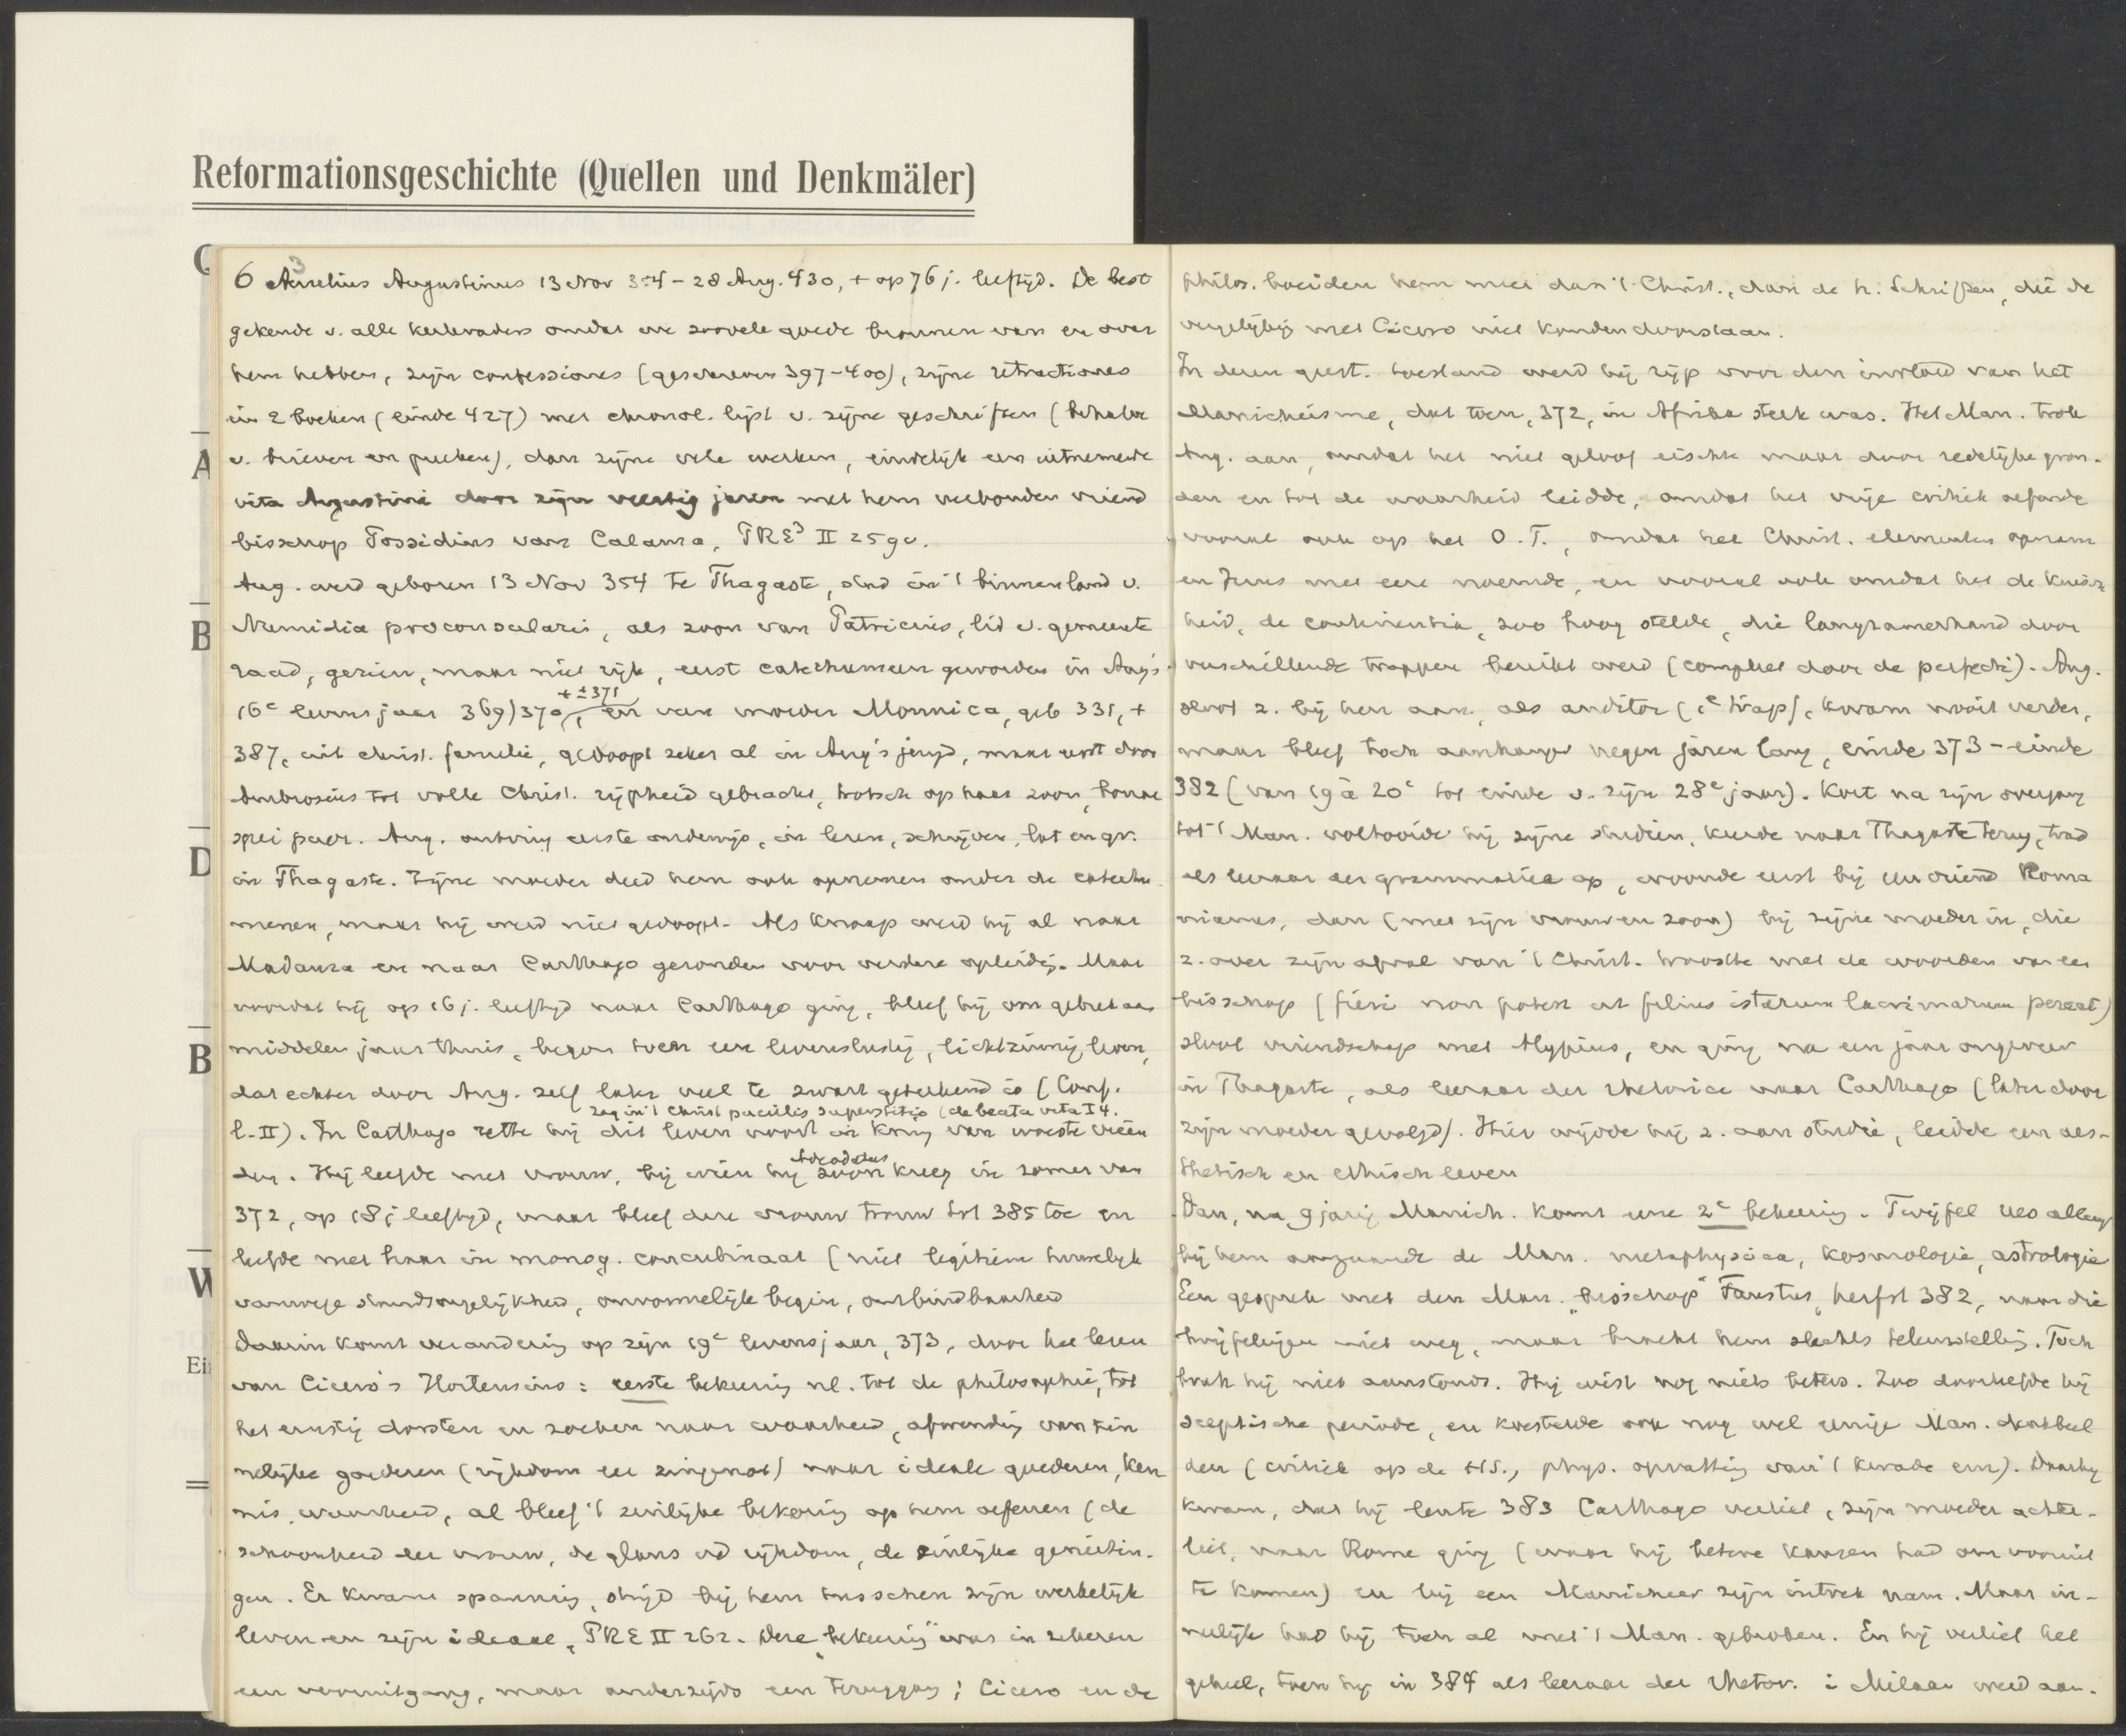 Reformationsgeschichte (Quellen und Denkmäler)
C
A
B
D
B
W
Ei
3
6 Aurelius Augustinus 13 Nov 354 – 28 Aug. 430, + op 76 j. leeftijd. De best
gekende v. alle kerkvaders omdat we zoovele goede bronnen van en over
hem hebben, zijn confessiones (geschreven 397–400), zijne retractiones
in 2 boeken (einde 427) met chronol. lijst v. zijne geschriften (behalve
v. brieven en preeken), dan zijne vele werken, eindelijk een uitnemende
vita Augustini door zijn veertig jaren met hem verbonden vriend
bisschop Possidius van Calama, PRE³ II 259v.
Aug. werd geboren 13 Nov 354 te Thagaste, stad in 't binnenland v.
Numidia proconsularis, als zoon van Patricius, lid v. gemeente
raad, gezien, maar niet rijk, eerst catechumeen geworden in Aug's
+ ± 371
16e levensjaar 369/370, en van moeder Monnica, geb 331, +
387, uit christ. familie, gedoopt zeker al in Aug's jeugd, maar eerst door
Ambrosius tot volle Christ. rijpheid gebracht, trotsch op haar zoon, bonae
spei puer. Aug. ontving eerste onderwijs, in lezen, schrijven, lat en gr.
in Thagaste. Zijne moeder deed hem ook opnemen onder de catechu-
menen, maar hij werd niet gedoopt. Als knaap werd hij al naar
Madaura en naar Carthago gezonden voor verdere opleidg. Maar
voordat hij op 16 j. leeftijd naar Carthago ging, bleef hij om gebrek aan
middelen jaar thuis, begon toen een levenslustig, lichtzinnig leven,
dat echter door Aug. zelf later veel te zwart geteekend is (Conf.
zag in 't Christ puerilis superstitio (de beata vita I 4.
l. II). In Carthago zette hij dit leven voort in kring van woeste vrien
Adeodatus
den. Hij leefde met vrouw, bij wien hij zoon kreeg in zomer van
372, op 18 j leeftijd, maar bleef deze vrouw trouw tot 385 toe en
leefde met haar in monog. concubinaat (niet legitiem huwelijk
vanwege standsongelijkheid, onvormelijk begin, ontbindbaarheid
Daarin komt verandering op zijn 19e levensjaar, 373, door het lezen
van Cicero's Hortensius: eerste bekeering nl. tot de philosophie, tot
het ernstig dorsten en zoeken naar waarheid, afwending van zin
nelijke goederen (rijkdom en zingenot) naar ideale goederen, ken
nis, waarheid, al bleef 't zinlijke bekoring op hem oefenen (de
schoonheid der vrouw, de glans vd rijkdom, de zinlijke genietin-
gen. Er kwam spanning, strijd bij hem tusschen zijn werkelijk
leven en zijn ideaal, PRE II 262. Deze „bekeering" was in zekeren
een vooruitgang, maar anderzijds een teruggang; Cicero en de
philos. boeiden hem meer dan 't Christ., dan de h. Schriften, die de
vergelijkg met Cicero niet konden doorstaan.
In dezen geest. toestand werd hij rijp voor den invloed van het
Manicheisme, dat toen, 372, in Afrika sterk was. Het Man. trok
Aug. aan, omdat het niet geloof eischte maar door redelijke gron-
den en tot de waarheid leidde, omdat het vrije critiek oefende
vooral ook op het O.T., omdat het Christ. elementen opnam
en Jezus met eere noemde, en vooral ook omdat het de kuisch
heid, de continentia, zoo hoog stelde, die langzamerhand door
verschillende trappen bereikt werd (compleet door de perfecti). Aug.
sloot z. bij hen aan, als auditor (1e trap), kwam nooit verder,
maar bleef toch aanhanger negen jaren lang, einde 373 – einde
382 (van 19 à 20e tot einde v. zijn 28e jaar). Kort na zijn overgang
tot 't Man. voltooide hij zijne studien, keerde naar Thagaste terug, trad
als leeraar der grammatica op, woonde eerst bij een vriend Roma
nianus, dan (met zijn vrouw en zoon) bij zijne moeder in, die
z. over zijn afval van 't Christ. troostte met de woorden van een
bisschop (fieri non potest ut filius istarum lacrimarum pereat)
sloot vriendschap met Alypius, en ging na een jaar ongeveer
in Thagaste, als leeraar der rhetorica naar Carthago (later door
zijn moeder gevolgd). Hier wijdde hij z. aan studie, leidde een aes-
thetisch en ethisch leven
Dan, na 9jarig Manich. komt eene 2e bekeering. Twijfel rees allengs
bij hem aangaande de Man. metaphysica, kosmologie, astrologie
Een gesprek met den Man. „bisschop" Faustus, herfst 382, nam die
twijfelingen niet weg, maar bracht hem slechts teleurstellg. Toch
brak hij niet aanstonds. Hij wist nog niets beters. Zoo doorleefde hij
sceptische periode, en koesterde ook nog wel eenige Man. denkbeel
den (critiek op de H.S., phys. opvatting van 't kwade enz). Daarbij
kwam, dat hij lente 383 Carthago verliet, zijn moeder achter-
liet, naar Rome ging (waar hij betere kansen had om vooruit
te komen) en bij een Manicheer zijn intrek nam. Maar in-
nerlijk had hij toen al met 't Man. gebroken. En hij verliet het
geheel, toen hij in 384 als leeraar der rhetor. i Milaan werd aan-